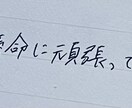 命に頑張って